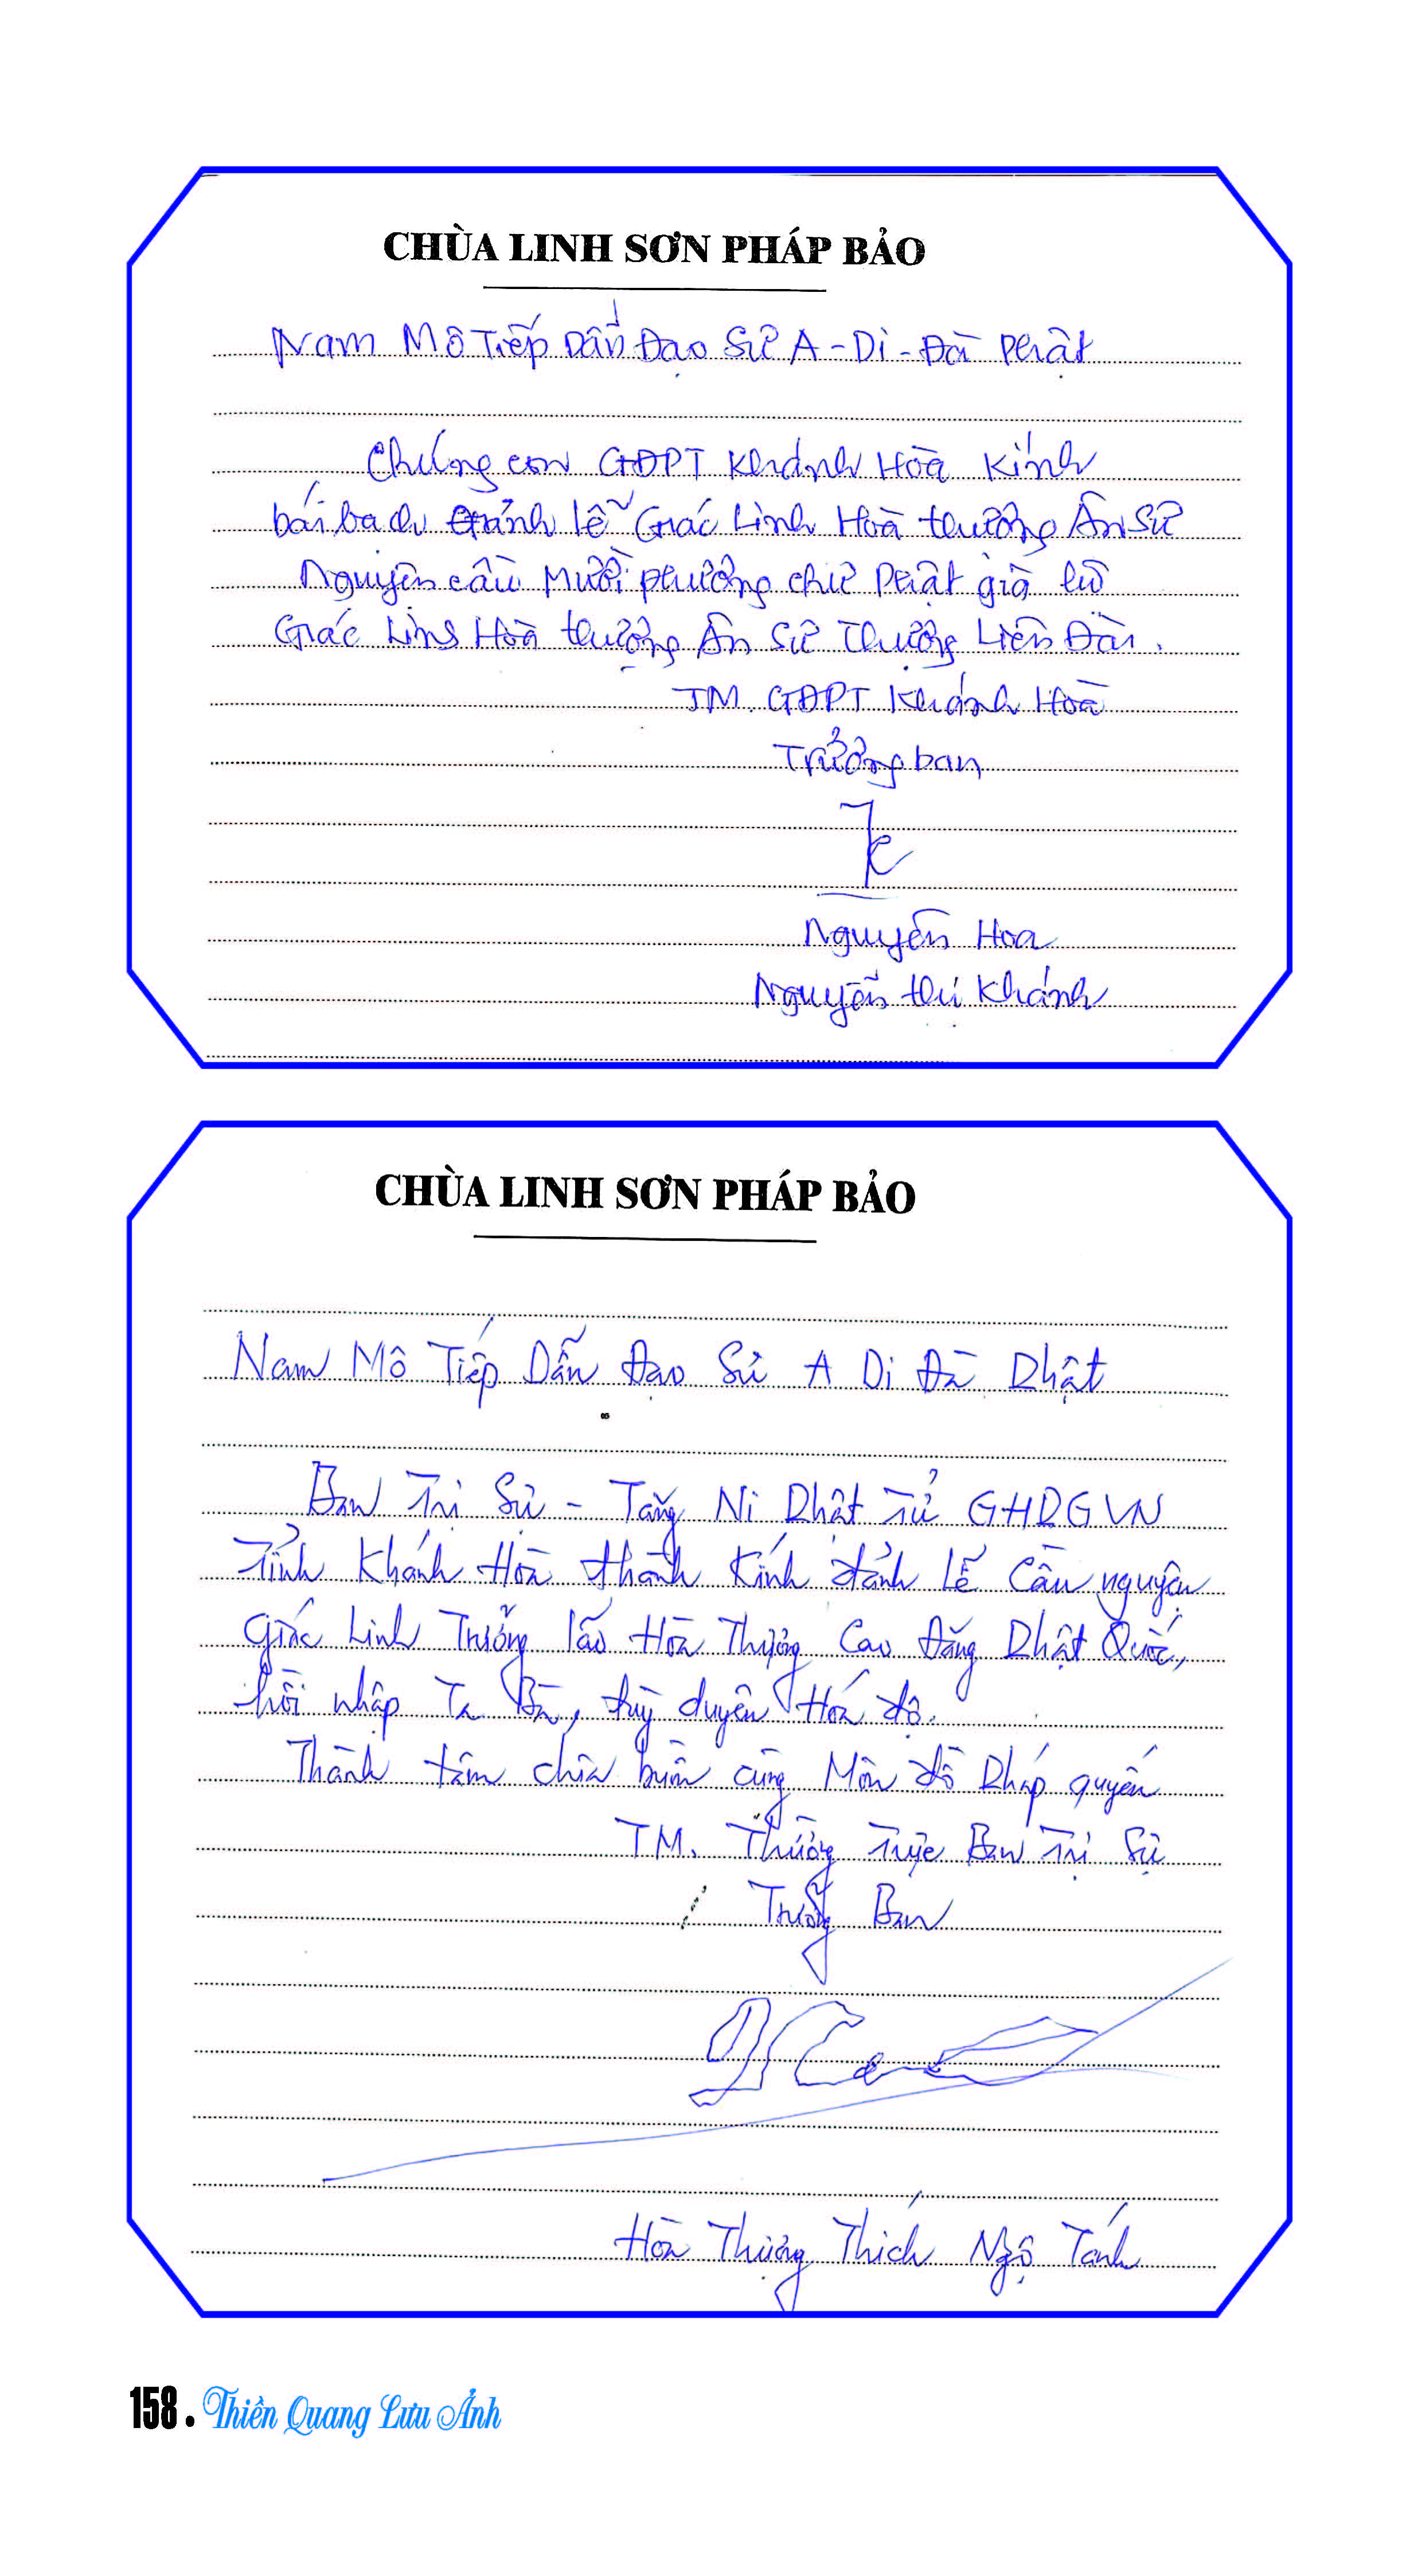 CHÙA LINH SƠN PHÁP BẢO
Nam Mô Tiếp Dẫn Đạo Sư A-Di-Đà Phật
Chúng con GĐPT Khánh Hòa Kính
bái bạch đảnh lễ Giác Linh Hoà thượng Ân Sư
Nguyện cầu Mười phương chư Phật gia
Giác Linh Hoà thượng Ân Sư Thượng Liên Đài.
TM. GĐPT Khánh Hoà
Trưởng ban
Nguyên Hoa
Nguyễn thị Khánh
CHÙA LINH SƠN PHÁP BẢO
Nam Mô Tiếp Dẫn Đạo Sư A Di Đà Phật
Ban Trị Sự - Tăng Ni Phật Tử GHPGVN
Tỉnh Khánh Hòa thành Kính đảnh Lễ Cầu nguyện
Giác Linh Trưởng lão Hòa Thượng Cao Đăng Phật Quốc,
hồi nhập Ta Bà, tùy duyên Hóa độ.
Thành tâm chia buồn cùng Môn đồ Pháp quyến
TM. Thường Trực Ban Trị Sự
Trưởng Ban
Hòa Thượng Thích Ngộ Tánh
158. Thiền Quang Lưu Ảnh